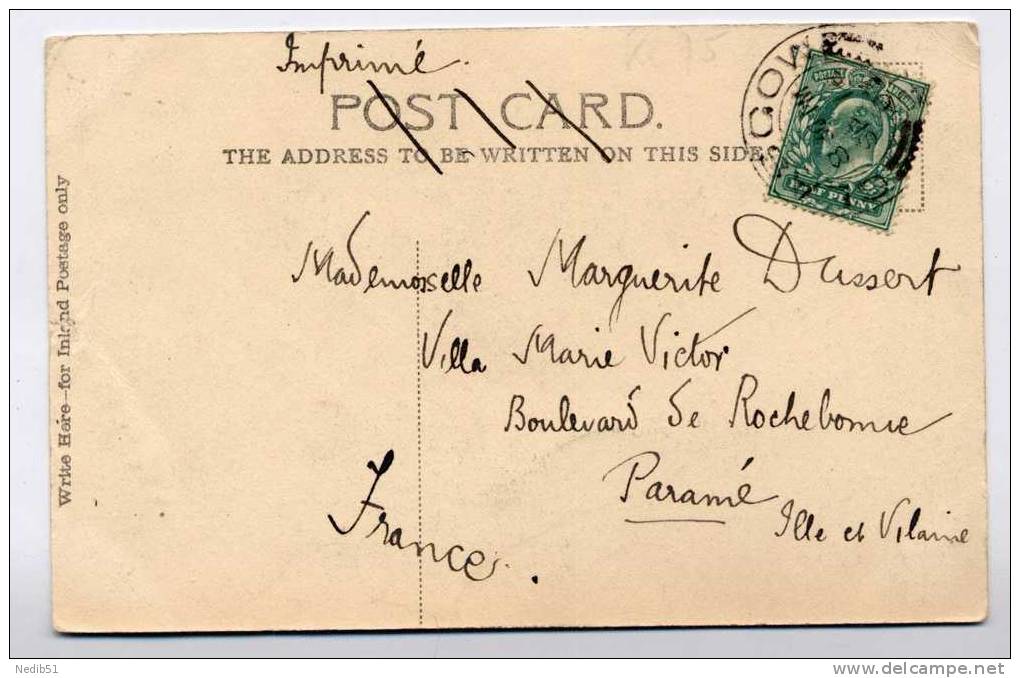 Imprimé.
POST CARD.
THE ADDRESS TO BE WRITTEN ON THIS SIDE
Write Here—for Inland Postage only
HALF PENNY
Mademoiselle Marguerite Dussert
Villa Marie Victor
Boulevard de Rochebonne
Paramé
Ille et Vilaine
France.
Nedib51
www.delcampe.net